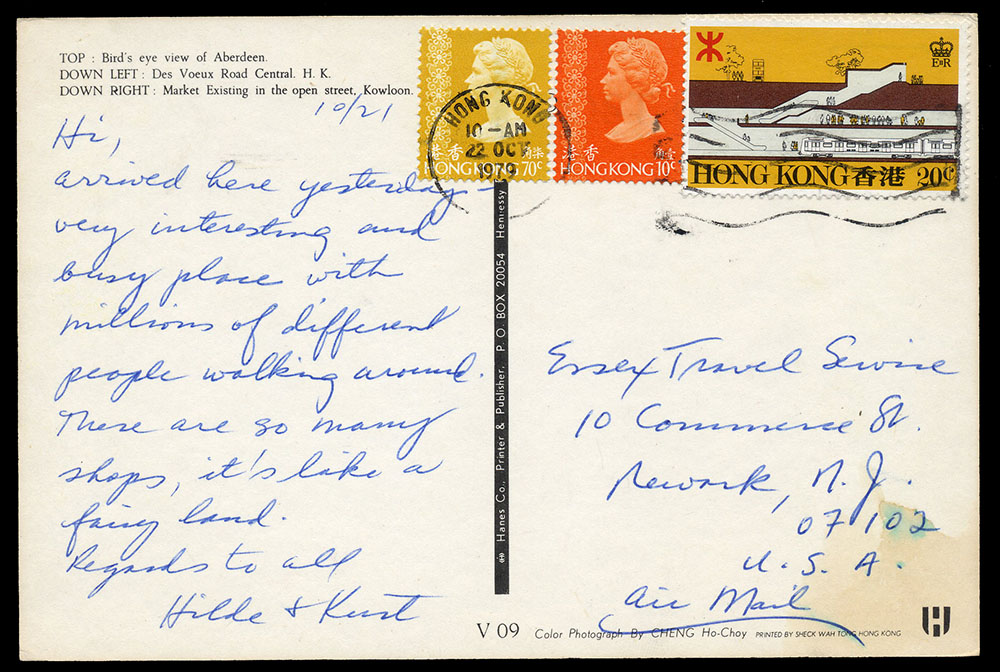 TOP : Bird's eye view of Aberdeen.
DOWN LEFT : Des Voeux Road Central. H. K.
DOWN RIGHT : Market Existing in the open street, Kowloon.
10/21
Hi,
arrived here yesterday –
very interesting and
busy place with
millions of different
people walking around.
There are so many
shops, it's like a
fairy land.
Regards to all
Hilde & Kurt
HONG KONG
10 – AM
22 OCT
1979
港香
HONG KONG 70¢
港香
HONG KONG 10¢
E R
HONG KONG 香港 20¢
Hanes Co., Printer & Publisher, P. O. BOX 20054 Hennessy
Essex Travel Service
10 Commerce St.
Newark, N. J.
07102
U. S. A.
Air Mail
V 09 Color Photograph By CHENG Ho-Choy PRINTED BY SHECK WAH TONG HONG KONG